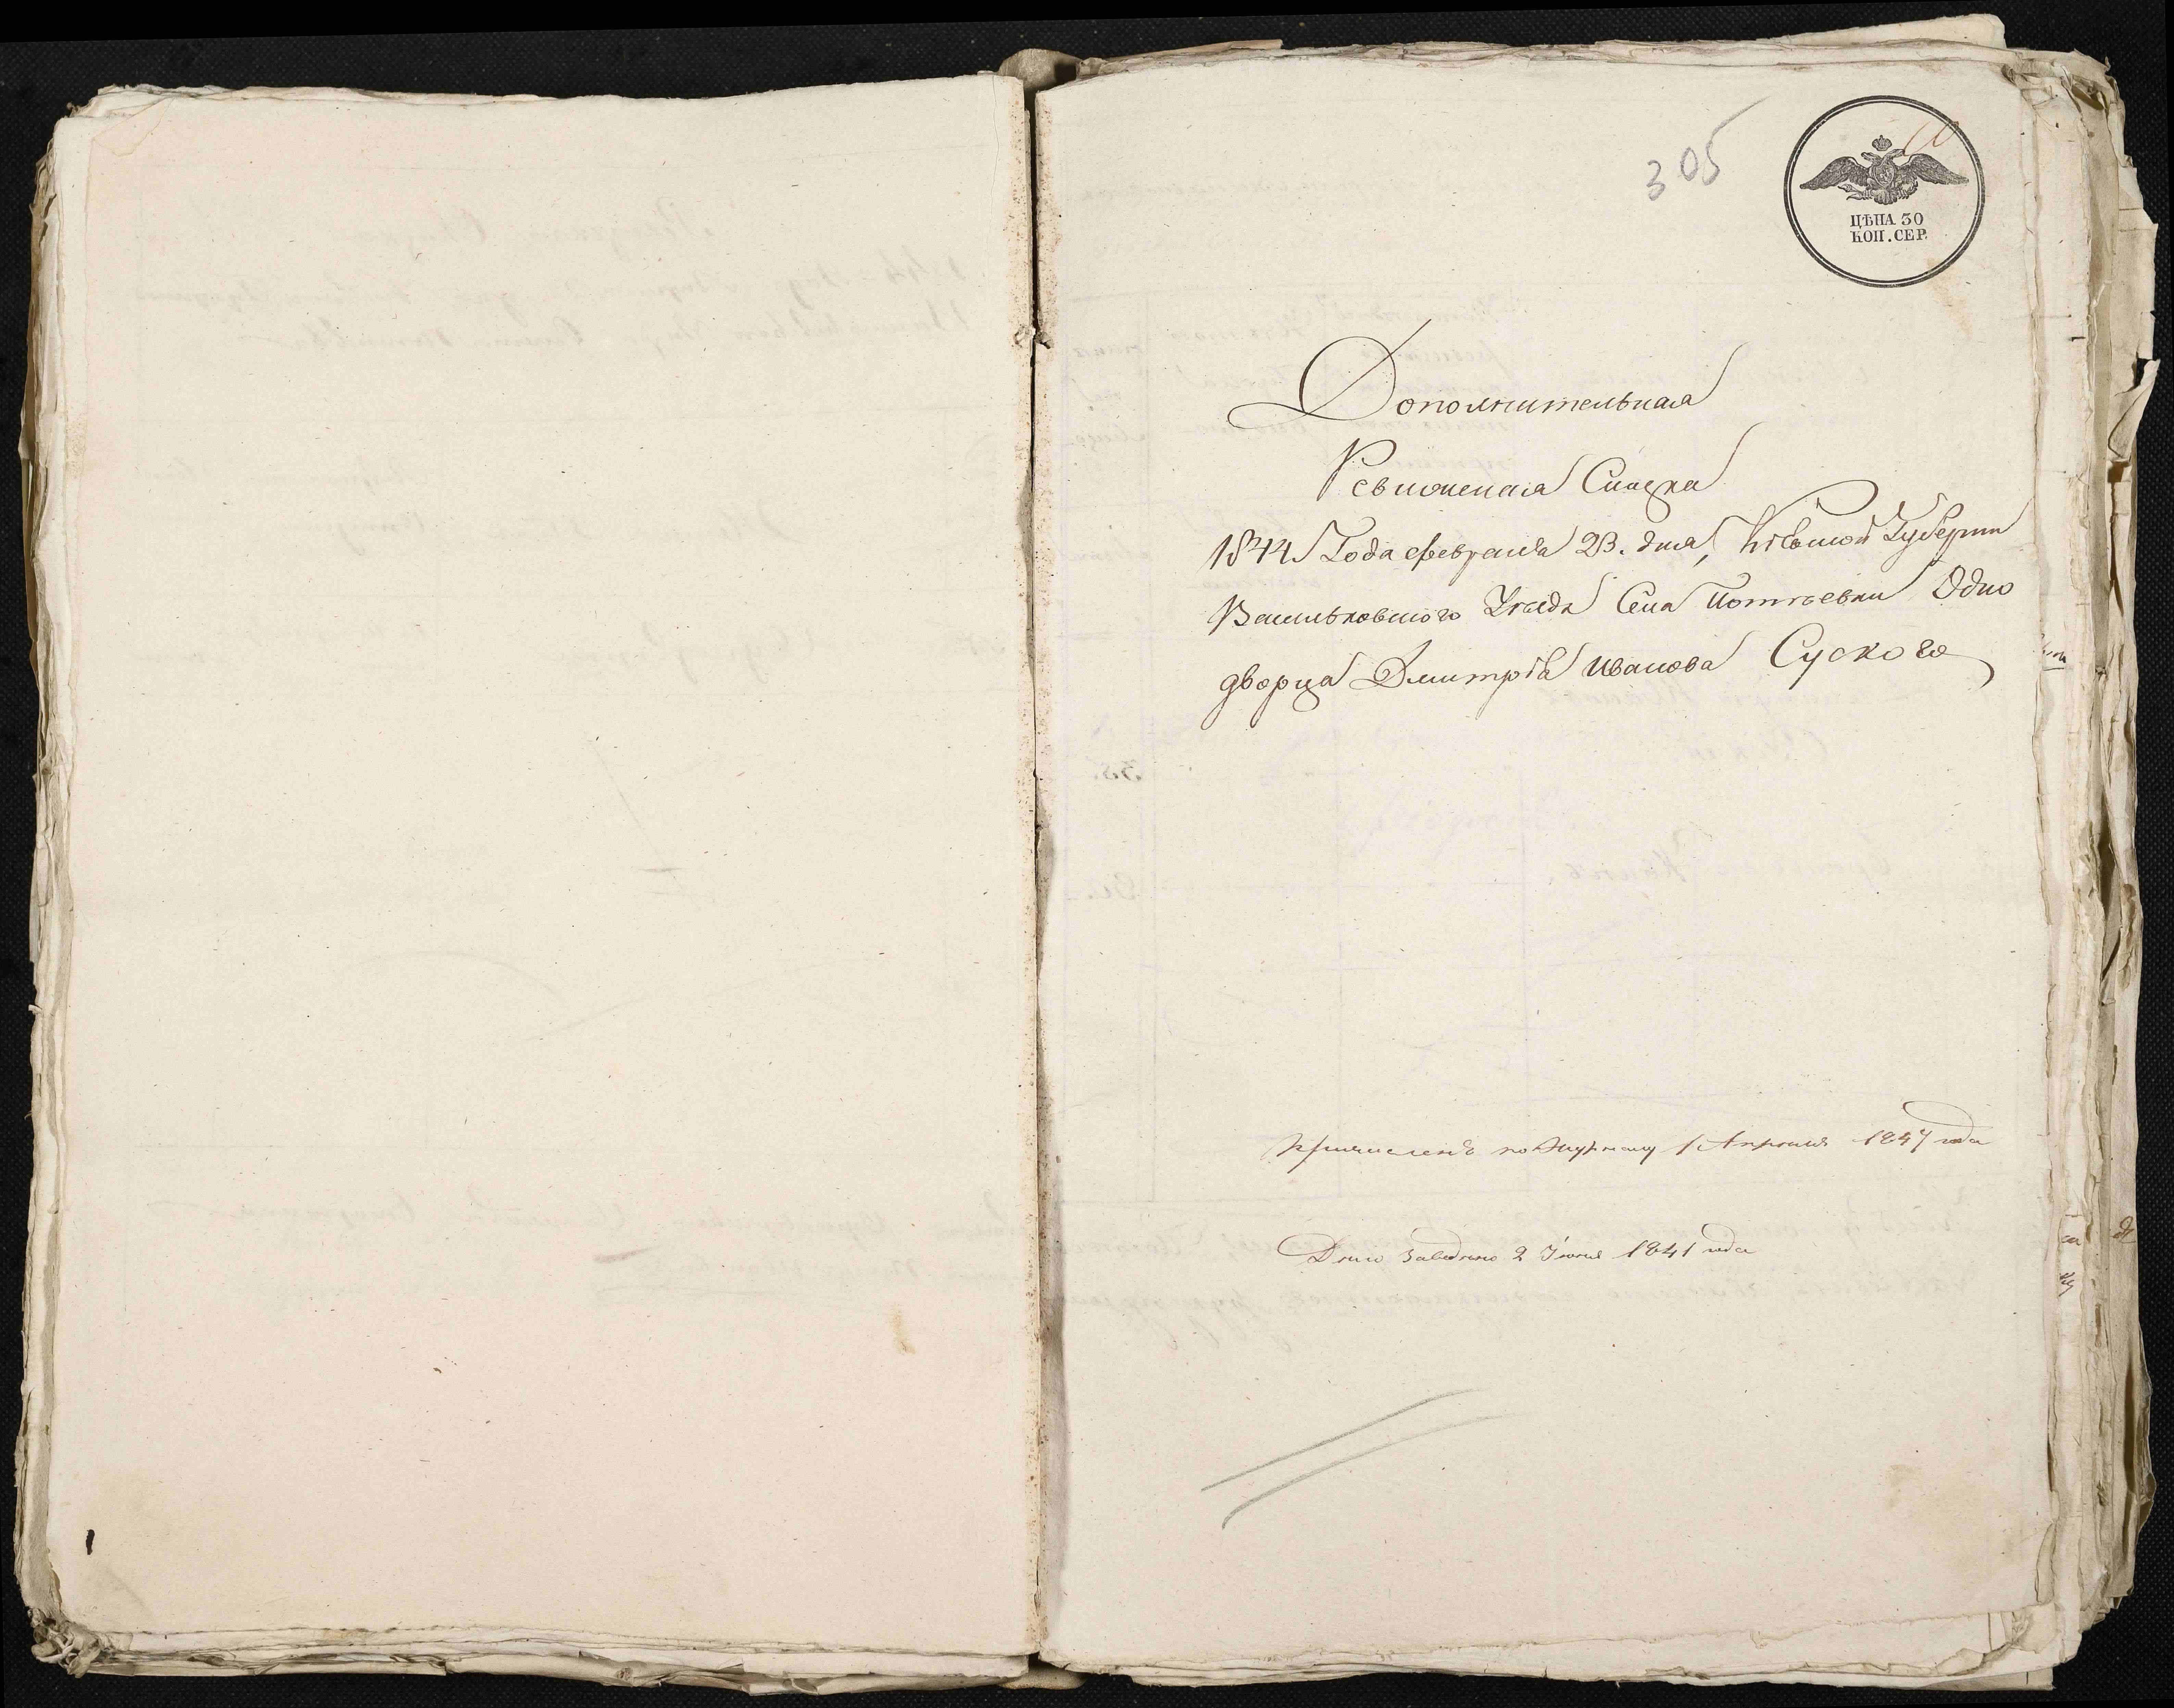 305
ЦѢНА 30
КОП. СЕР.
Дополнительная
Ревизская Сказка
1844 Года февраля 23. дня, Кіевской Губерніи
Васильковского Уезда Села Потіевки Одно
дворца Дмитрія Иванова Суского
Причисленъ по Журналу 1 Апреля 1847 года
Дело заведено 2 Іюня 1841 года